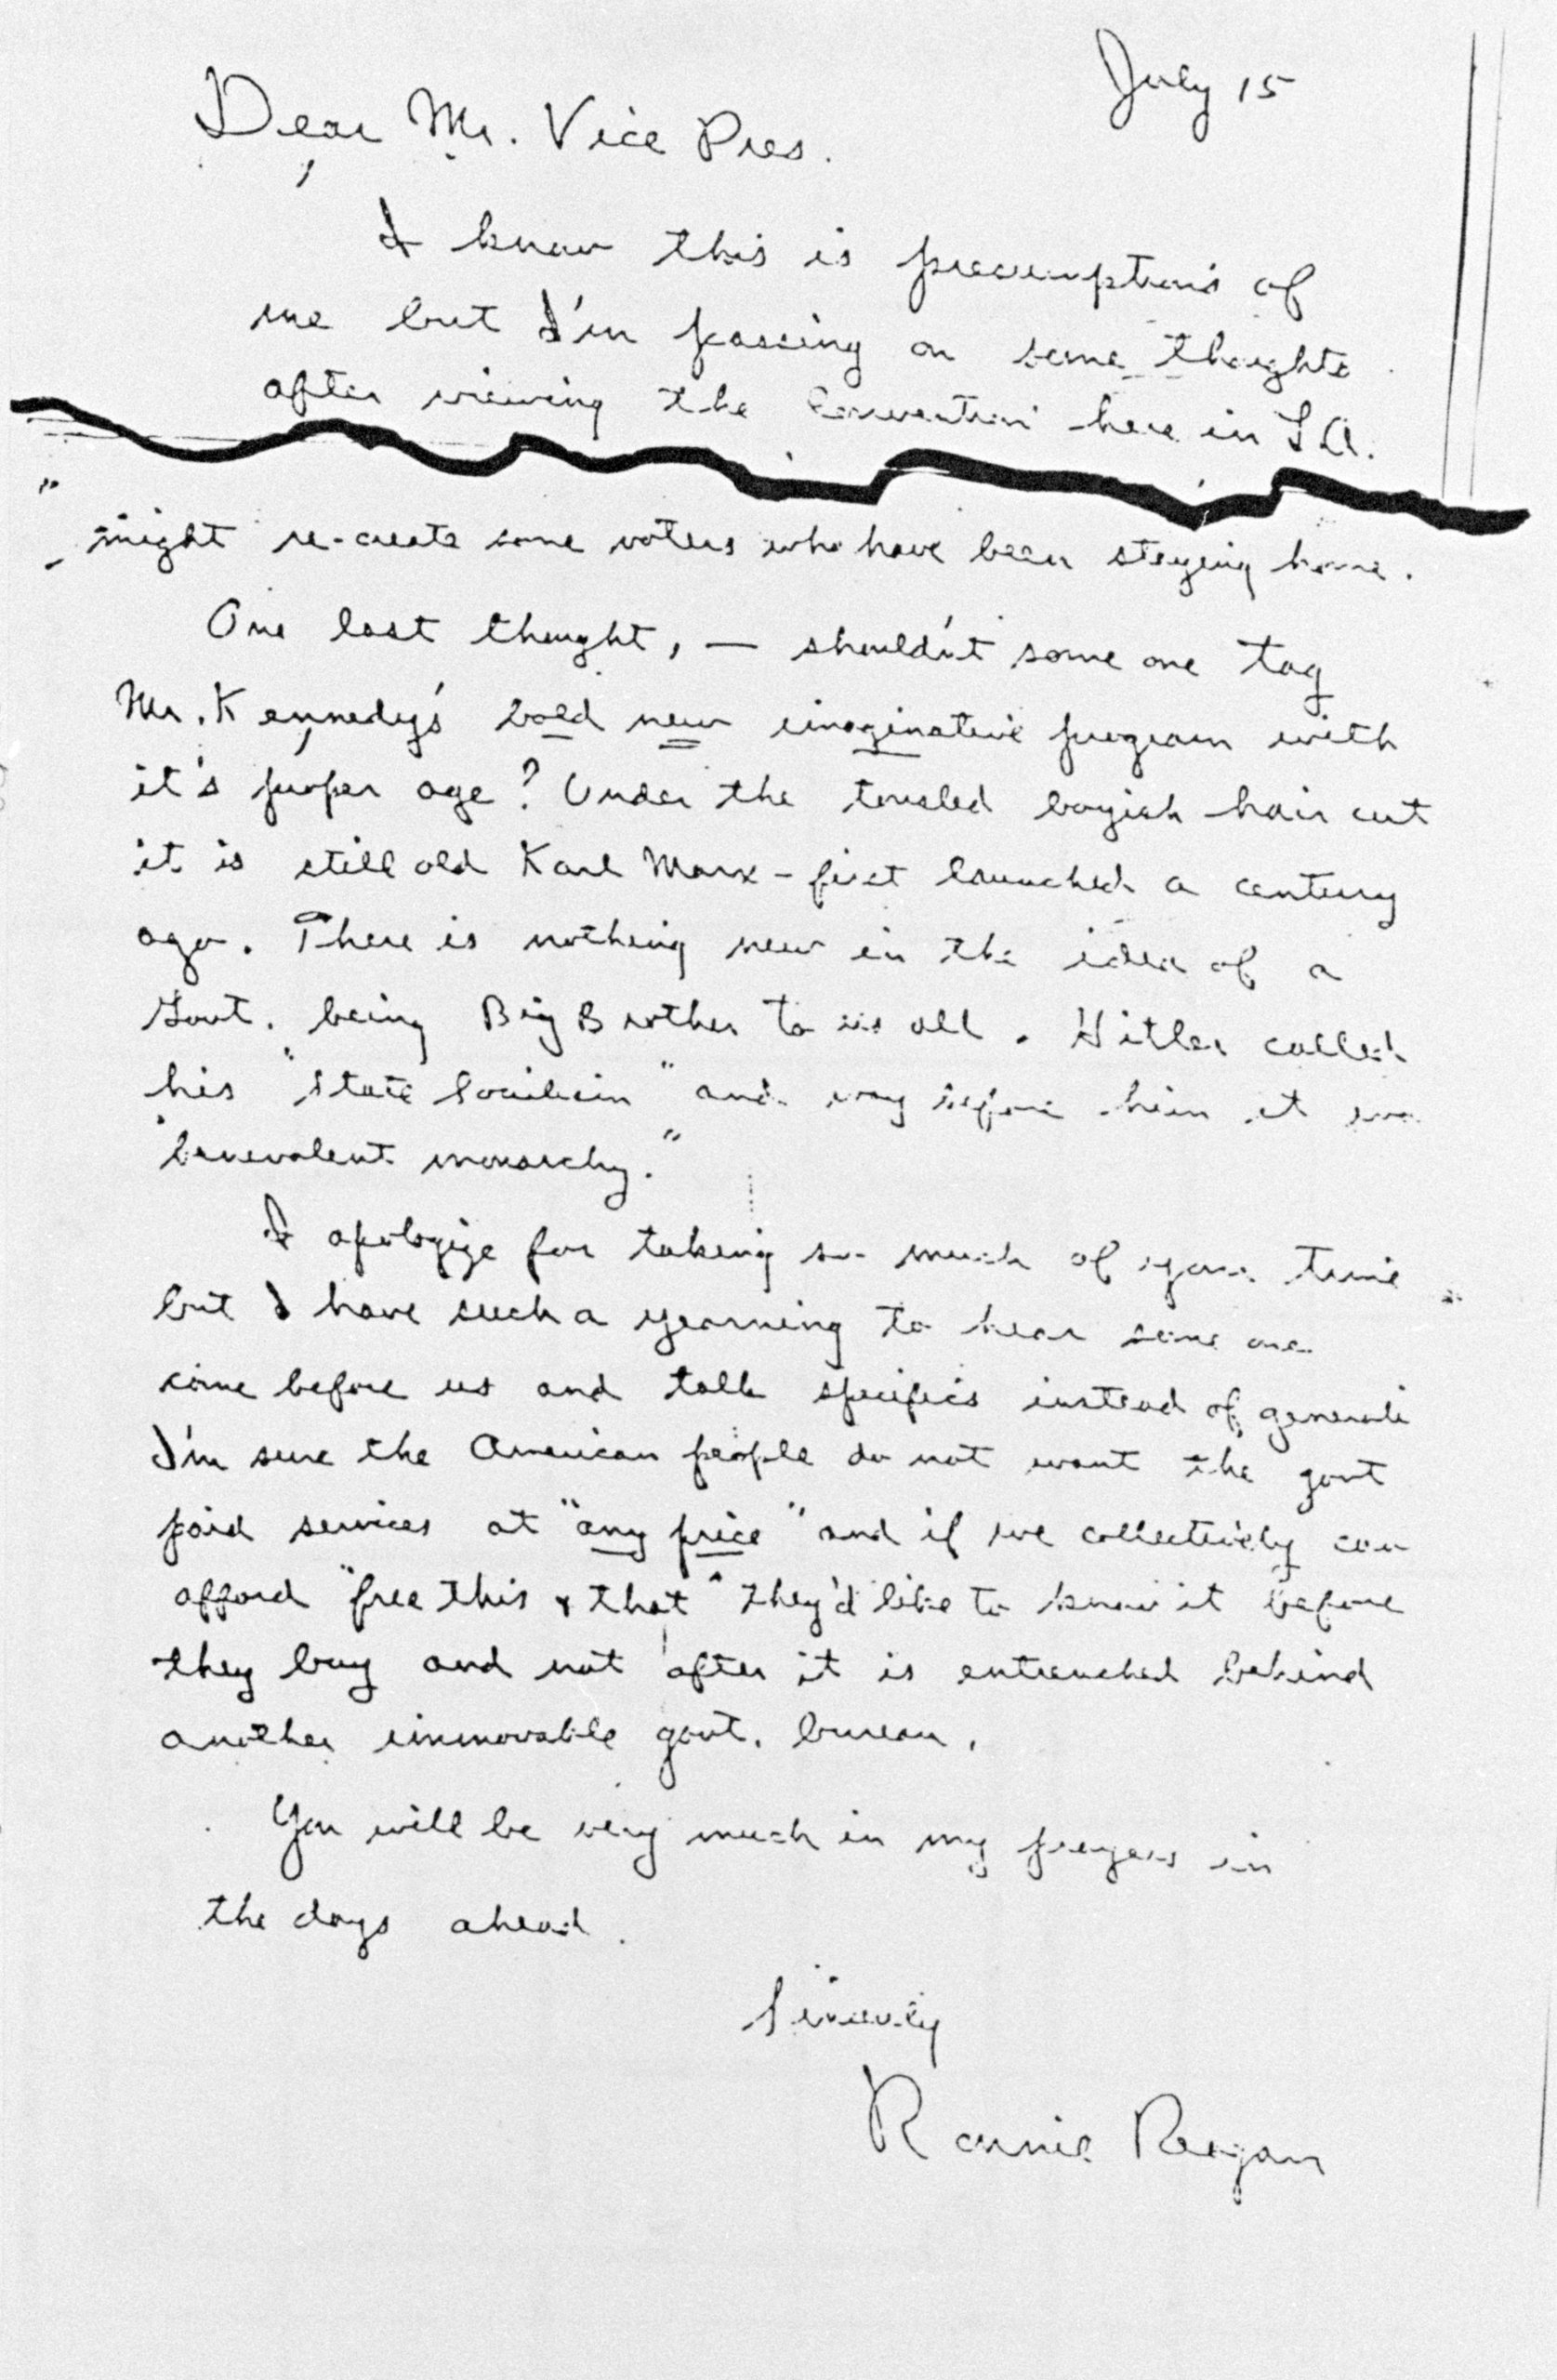 July 15
Dear Mr. Vice Pres.
I know this is presumptious of
me but I'm passing on some thoughts
after viewing the Convention here in LA.
might re-create some voters who have been staying home.
One last thought, — shouldn't some one tag
Mr. Kennedy's bold new imaginative program with
it's proper age? Under the tousled boyish hair cut
it is still old Karl Marx - first launched a century
ago. There is nothing new in the idea of a
Govt. being Big Brother to us all. Hitler called
his "State Socialism" and way before him it was
"benevolent monarchy."
I apologize for taking so much of your time
but I have such a yearning to hear some one
come before us and talk specifics instead of generali
I'm sure the American people do not want the govt
paid services at "any price" and if we collectively can
afford "free this & that" they'd like to know it before
they buy and not after it is entrenched behind
another immovable govt. bureau.
You will be very much in my prayers in
the days ahead.
Sincerely
Ronnie Reagan